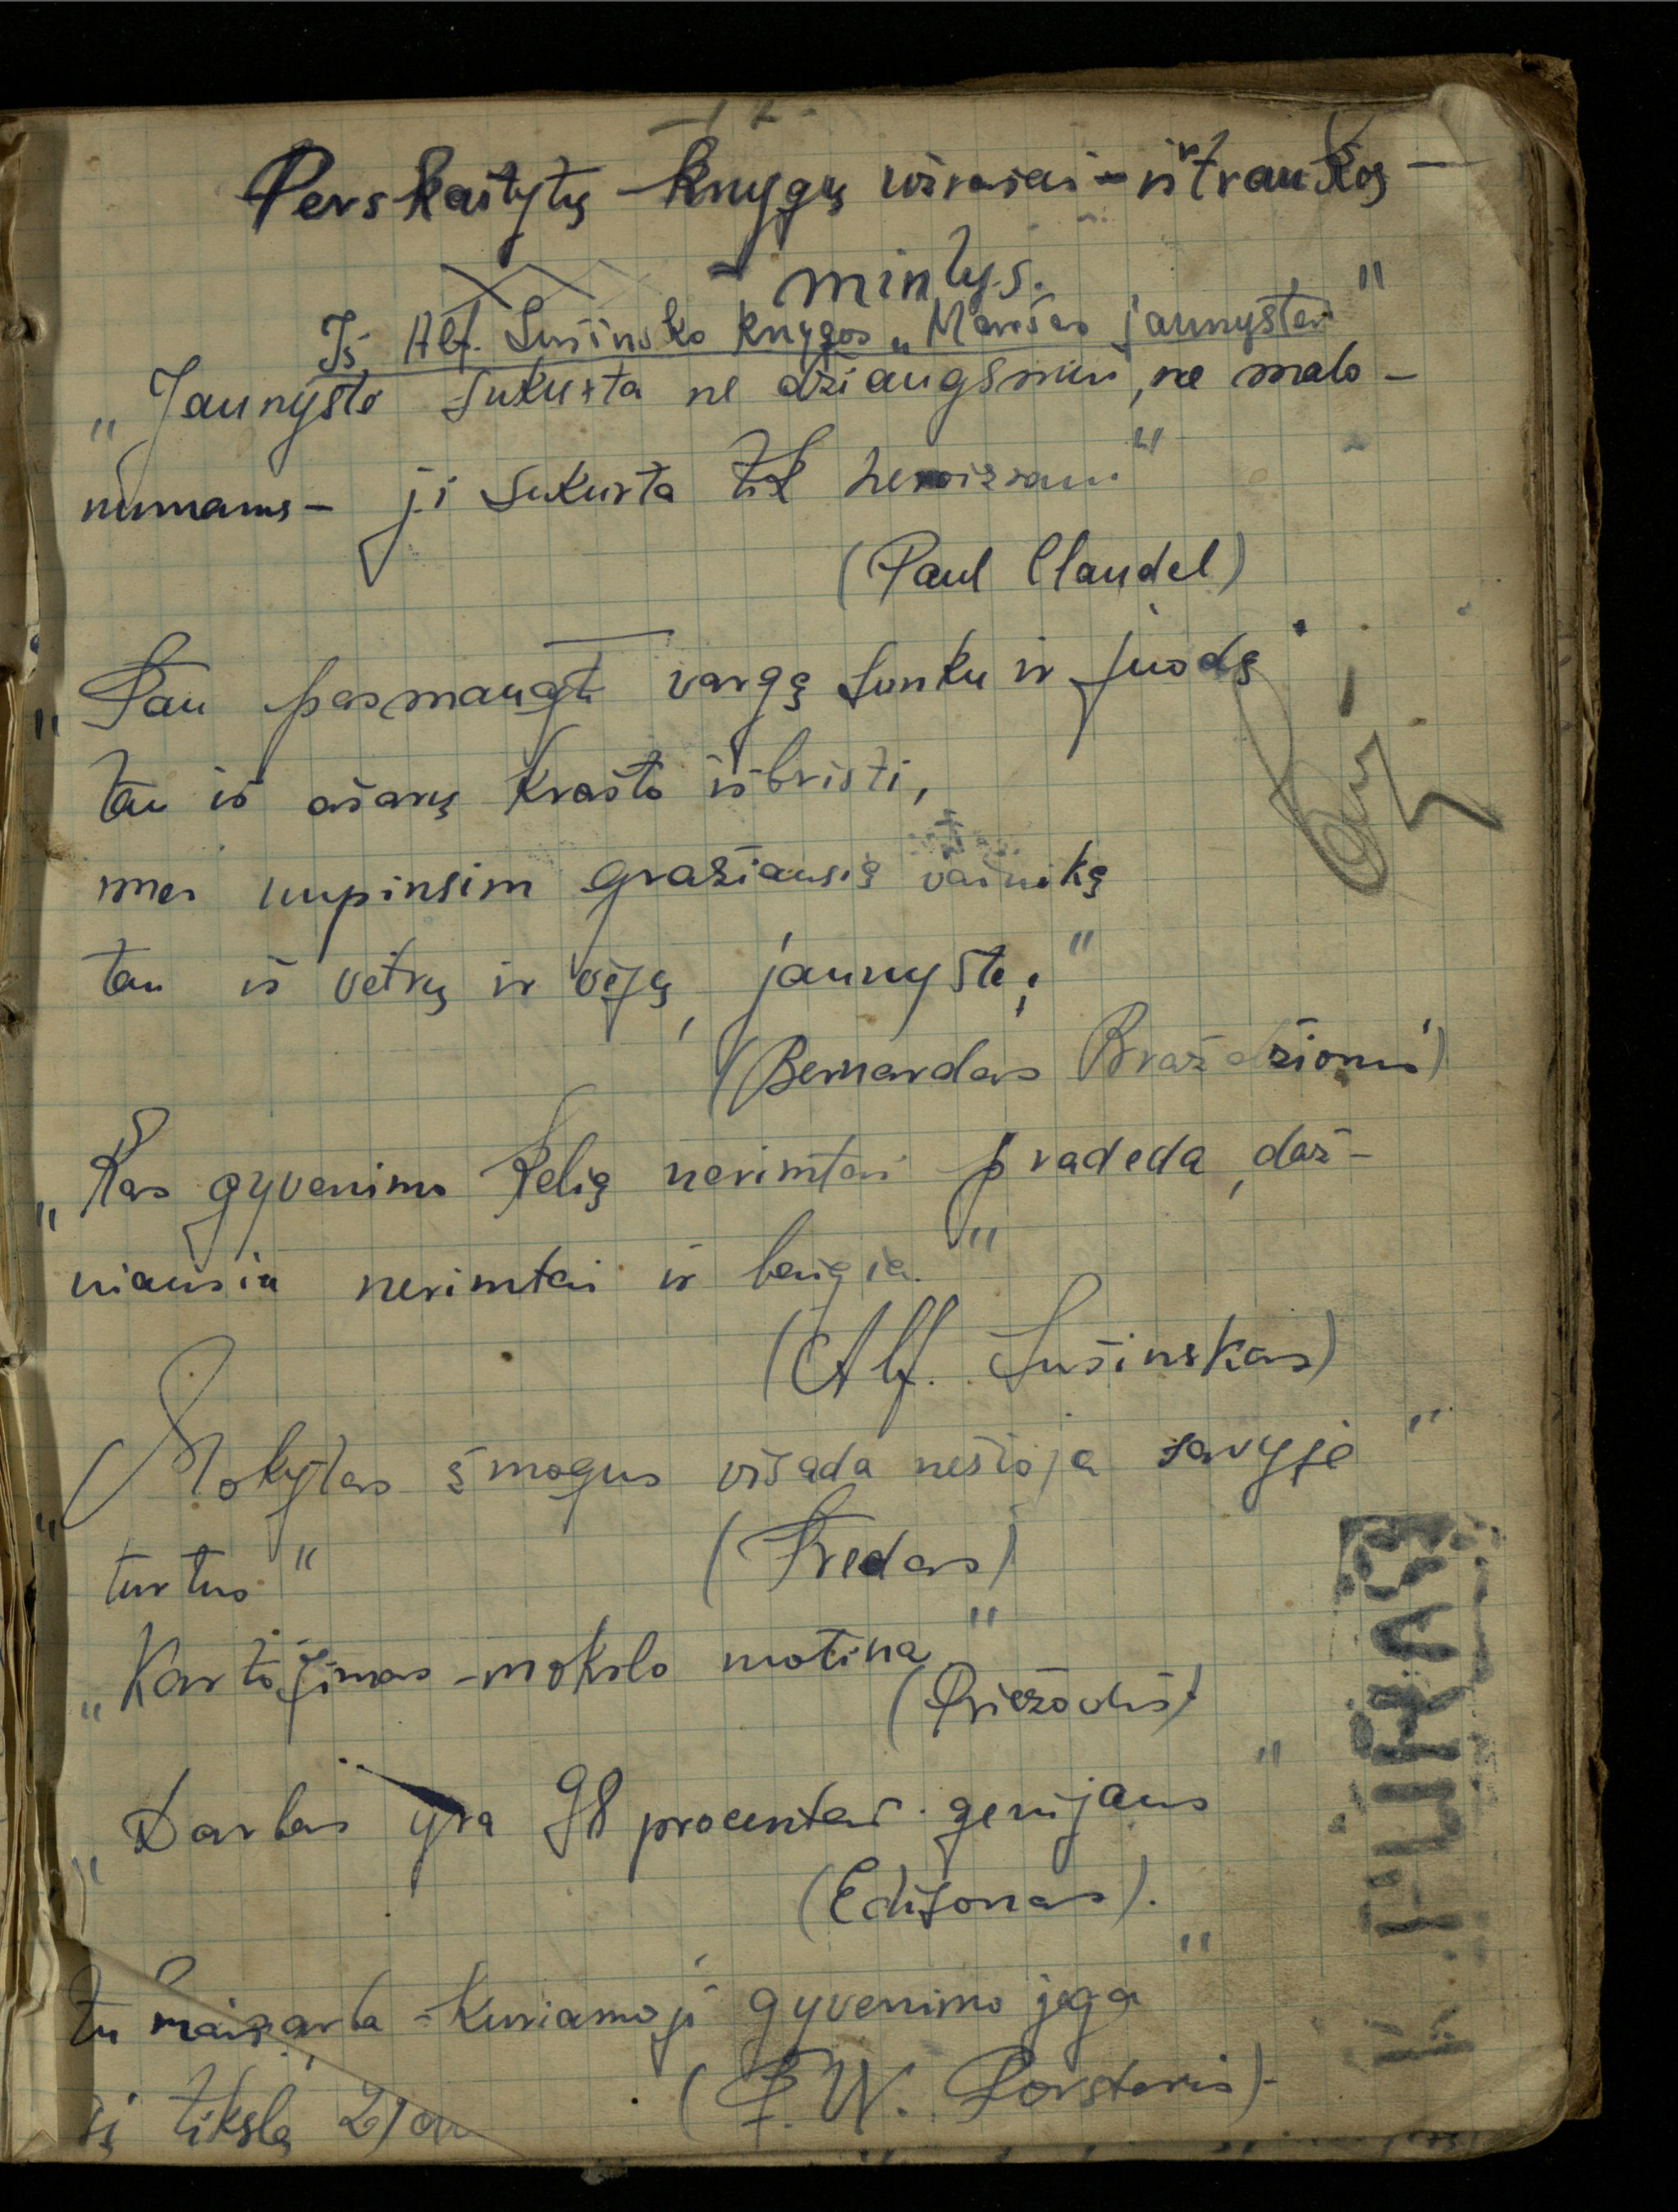 -12-
Perskaitytų knygų išrašai - ištraukos -
- mintys.
Iš Alf. Sušinsko knygos „Maršas jaunystei"
„Jaunystė sukurta ne džiaugsmui, ne malo-
numams - ji sukurta tik heroizmui"
(Paul Claudel)
„Tau pasmaugti vargą sunku ir juodą
tau iš ašarų krašto išbristi,
mes nupinsim gražiausią vainiką
tau iš vėtrų ir vėjų, jaunyste!"
(Bernardas Brazdžionis)
„Kas gyvenimo kelią nerimtai pradeda, daž-
niausia nerimtai ir baigia."
(Alf. Sušinskas)
„Mokytas žmogus visada nešioja savyje
turtus" (Fredas)
„Kartojimas - mokslo motina"
(Priežodis)
„Darbas yra 98 procentai genijaus"
(Edisonas).
kuriamoji gyvenimo jėga"
(F. W. Forsteris)-
tikslą
K. PLIRAS